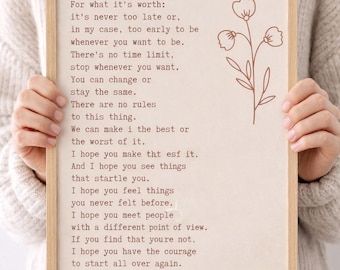 For what it's worth:
it's never too late or,
in my case, too early to be
whenever you want to be.
There's no time limit,
stop whenever you want.
You can change or
stay the same.
There are no rules
to this thing.
We can make i the best or
the worst of it.
I hope you make tht esf it.
And I hope you see things
that startle you.
I hope you feel things
you never felt before,
I hope you meet people
with a different point of view.
If you find that you're not,
I hope you have the courage
to start all over again.